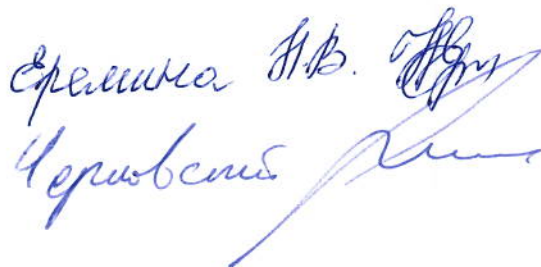 Еремина Н.В.
Черновский